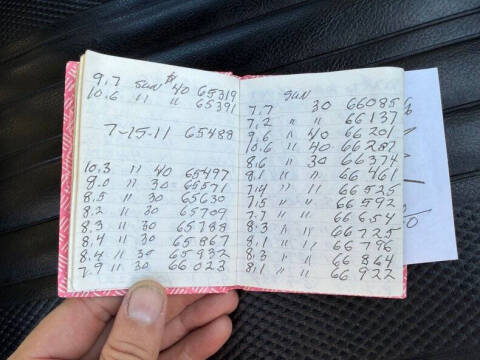 9.7 SUN $40 65319
10.6 " " 65391
7-15-11 65488
10.3 " 40 65497
8.0 " 30 65571
8.5 " 30 65630
8.2 " 30 65709
8.3 " 30 65788
8.4 " 30 65867
8.4 " 30 65932
7.9 " 30 66023
SUN
7.7 30 66085
7.2 " " 66137
9.6 " 40 66201
10.6 " 40 66287
8.6 " 30 66374
8.1 " " 66461
7.4 " " 66525
7.5 " " 66592
7.7 " " 66654
8.3 " " 66725
8.1 " " 66796
8.3 " " 66864
8.1 " " 66922